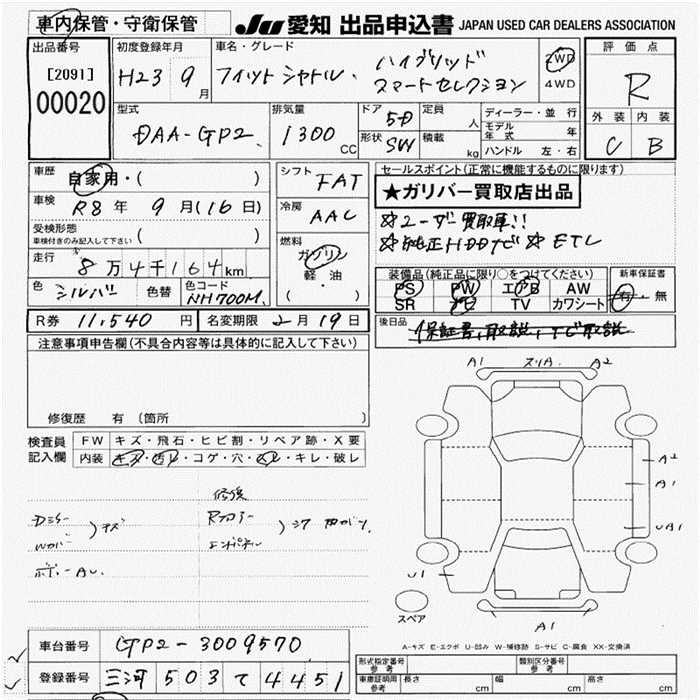 車内保管・守衛保管 JU 愛知 出品申込書 JAPAN USED CAR DEALERS ASSOCIATION
出品番号 初度登録年月 車名・グレード 評価点
[2091] H23 9月 フィットシャトル・ハイブリッド 2WD R
00020 スマートセレクション 4WD
型式 排気量 ドア 5D 定員 人 ディーラー・並行 外装 内装
DAA-GP2 1300 CC 形状 SW 積載 kg モデル年式 年 C B
ハンドル 左・右
車歴 自家用・( ) シフト FAT セールスポイント(正常に機能するものに限ります)
★ガリバー買取店出品
車検 R8年 9月(16日) 冷房 AAC ☆ユーザー買取車!!
受検形態 ( ) ☆純正HDDナビ ☆ETC
車検付きのみ記入して下さい
燃料 ガソリン
走行 8万4千164km 軽油 装備品(純正品に限り○をつけてください) 新車保証書
色 シルバー 色替 色コード NH700M ( ・ ) PS PW エアB AW 有・無
SR ナビ TV カワシート
R券 11,540円 名変期限 2月19日 後日品 保証書、取説、ナビ取説
注意事項申告欄(不具合内容等は具体的に記入して下さい)
A1 スリA A2
修復歴 有 (箇所
検査員 FW キズ・飛石・ヒビ割・リペア跡・X要
記入欄 内装 キズ・汚レ・コゲ・穴・スレ・キレ・破レ
A2
A1
修後
UA1
U1
スペア
A1
車台番号 GP2-3009570 A-キズ E-エクボ U-凹み W-補修跡 S-サビ C-腐食 XX-交換済
登録番号 三河 503 て 4451 形式指定番号 参考 類別区分番号 参考
車庫証明用 参考 長さ cm 幅 cm 高さ cm